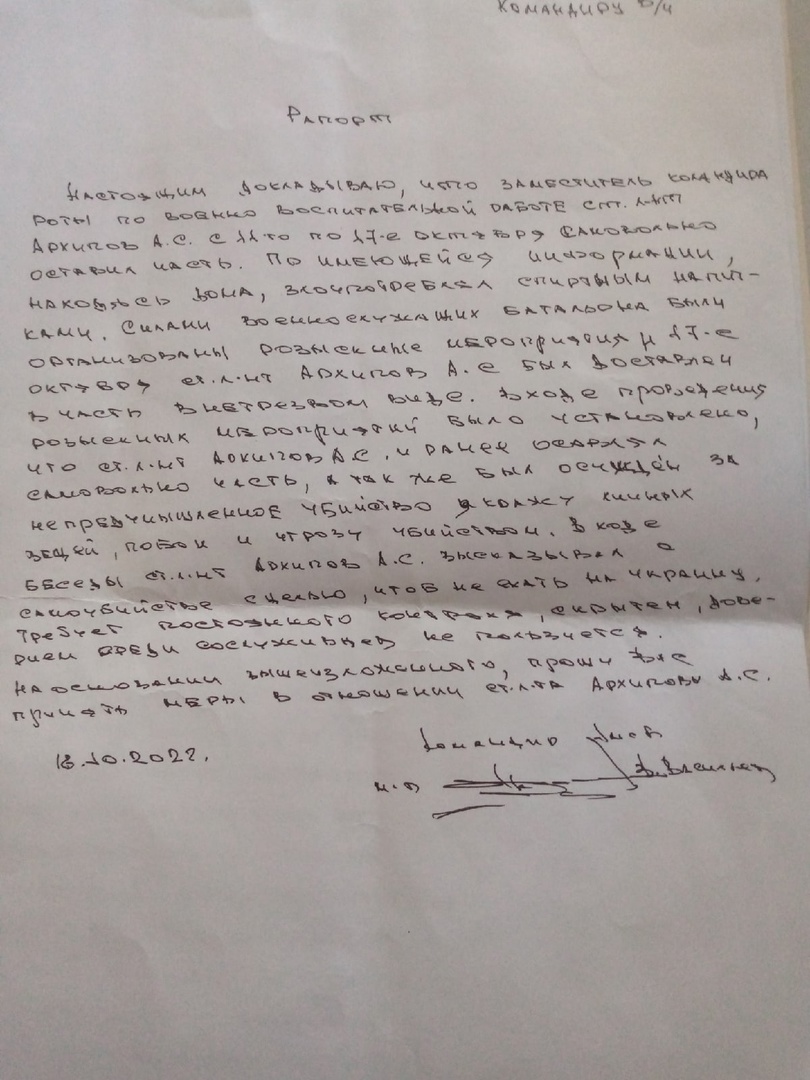 КОМАНДИРУ В/Ч
РАПОРТ
НАСТОЯЩИМ ДОКЛАДЫВАЮ, ЧТО ЗАМЕСТИТЕЛЬ КОМАНДИРА
РОТЫ ПО ВОЕННО ВОСПИТАТЕЛЬНОЙ РАБОТЕ СТ. Л-НТ
АРХИПОВ А.С. С 11 ГО ПО 17-Е ОКТЯБРЯ САМОВОЛЬНО
ОСТАВИЛ ЧАСТЬ. ПО ИМЕЮЩЕЙСЯ ИНФОРМАЦИИ,
НАХОДЯСЬ ДОМА, ЗЛОУПОТРЕБЛЯЛ СПИРТНЫМ НАПИТ-
КАМИ. СИЛАМИ ВОЕННОСЛУЖАЩИХ БАТАЛЬОНА БЫЛИ
ОРГАНИЗОВАНЫ РОЗЫСКНЫЕ МЕРОПРИЯТИЯ И 17-Е
ОКТЯБРЯ СТ. Л-НТ АРХИПОВ А.С БЫЛ ДОСТАВЛЕН
В ЧАСТЬ В НЕТРЕЗВОМ ВИДЕ. В ХОДЕ ПРОВЕДЕНИЯ
РОЗЫСКНЫХ МЕРОПРИЯТИЙ БЫЛО УСТАНОВЛЕНО,
ЧТО СТ. Л-НТ АРХИПОВ А.С. И РАНЕЕ ОСТАВЛЯЛ
САМОВОЛЬНО ЧАСТЬ, А ТАК ЖЕ БЫЛ ОСУЖДЁН ЗА
НЕПРЕДУМЫШЛЕННОЕ УБИЙСТВО КРАЖУ ЛИЧНЫХ
ВЕЩЕЙ, ПОБОИ И УГРОЗУ УБИЙСТВОМ. В ХОДЕ
БЕСЕДЫ СТ. Л-НТ АРХИПОВ А.С. ВЫСКАЗЫВАЛ О
САМОУБИЙСТВЕ С ЦЕЛЬЮ, ЧТОБ НЕ ЕХАТЬ НА УКРАИНУ.
ТРЕБУЕТ ПОСТОЯННОГО КОНТРОЛЯ, СКРЫТЕН, ДОВЕ-
РИЕМ СРЕДИ СОСЛУЖИВЦЕВ НЕ ПОЛЬЗУЕТСЯ.
НА ОСНОВАНИИ ВЫШЕИЗЛОЖЕННОГО, ПРОШУ ВАС
ПРИНЯТЬ МЕРЫ В ОТНОШЕНИИ СТ. Л-ТА АРХИПОВА А.С.
18.10.2022. КОМАНДИР
М-Р